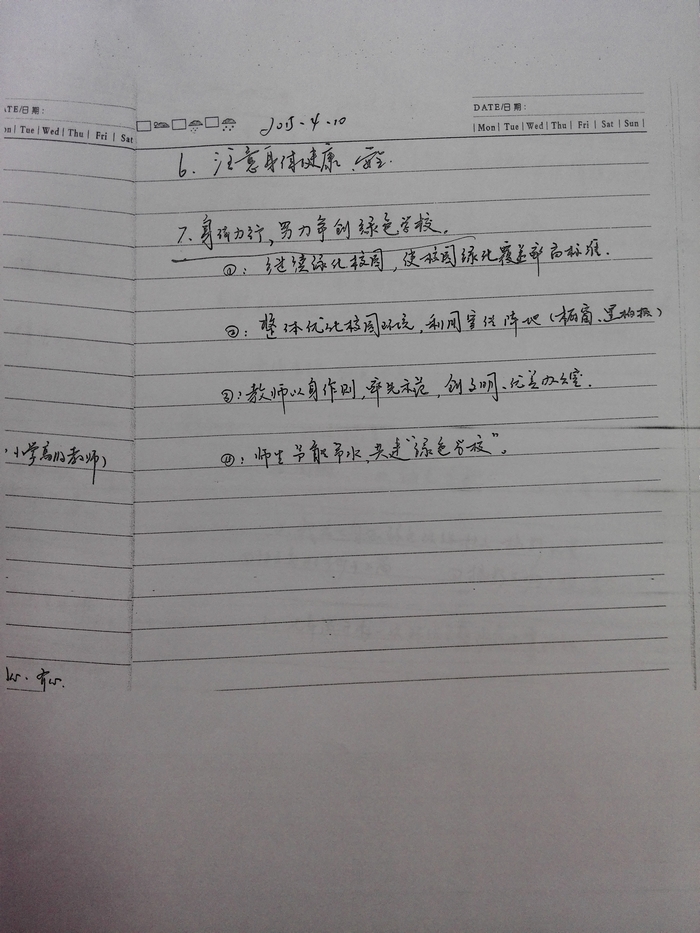 ATE/日期:
on | Tue | Wed | Thu | Fri | Sat
小学高级教师)
2015-4-10
DATE/日期:
| Mon | Tue | Wed | Thu | Fri | Sat | Sun |
6. 注意身体健康、安全.
7. 身体力行,努力争创绿色学校.
①: 继续绿化校园,使校园绿化覆盖率高标准.
②: 整体优化校园环境,利用宣传阵地(橱窗、黑板报)
③: 教师以身作则,率先示范,创文明、优美办公室.
④: 师生节能节水,共建“绿色学校”。